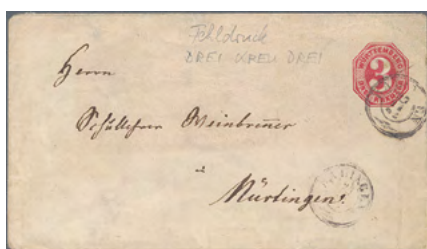 Fehldruck
DREI KREU DREI
WÜRTTEMBERG
3
Herrn
Schullehrer Weinbrenner
in
Nürtingen.